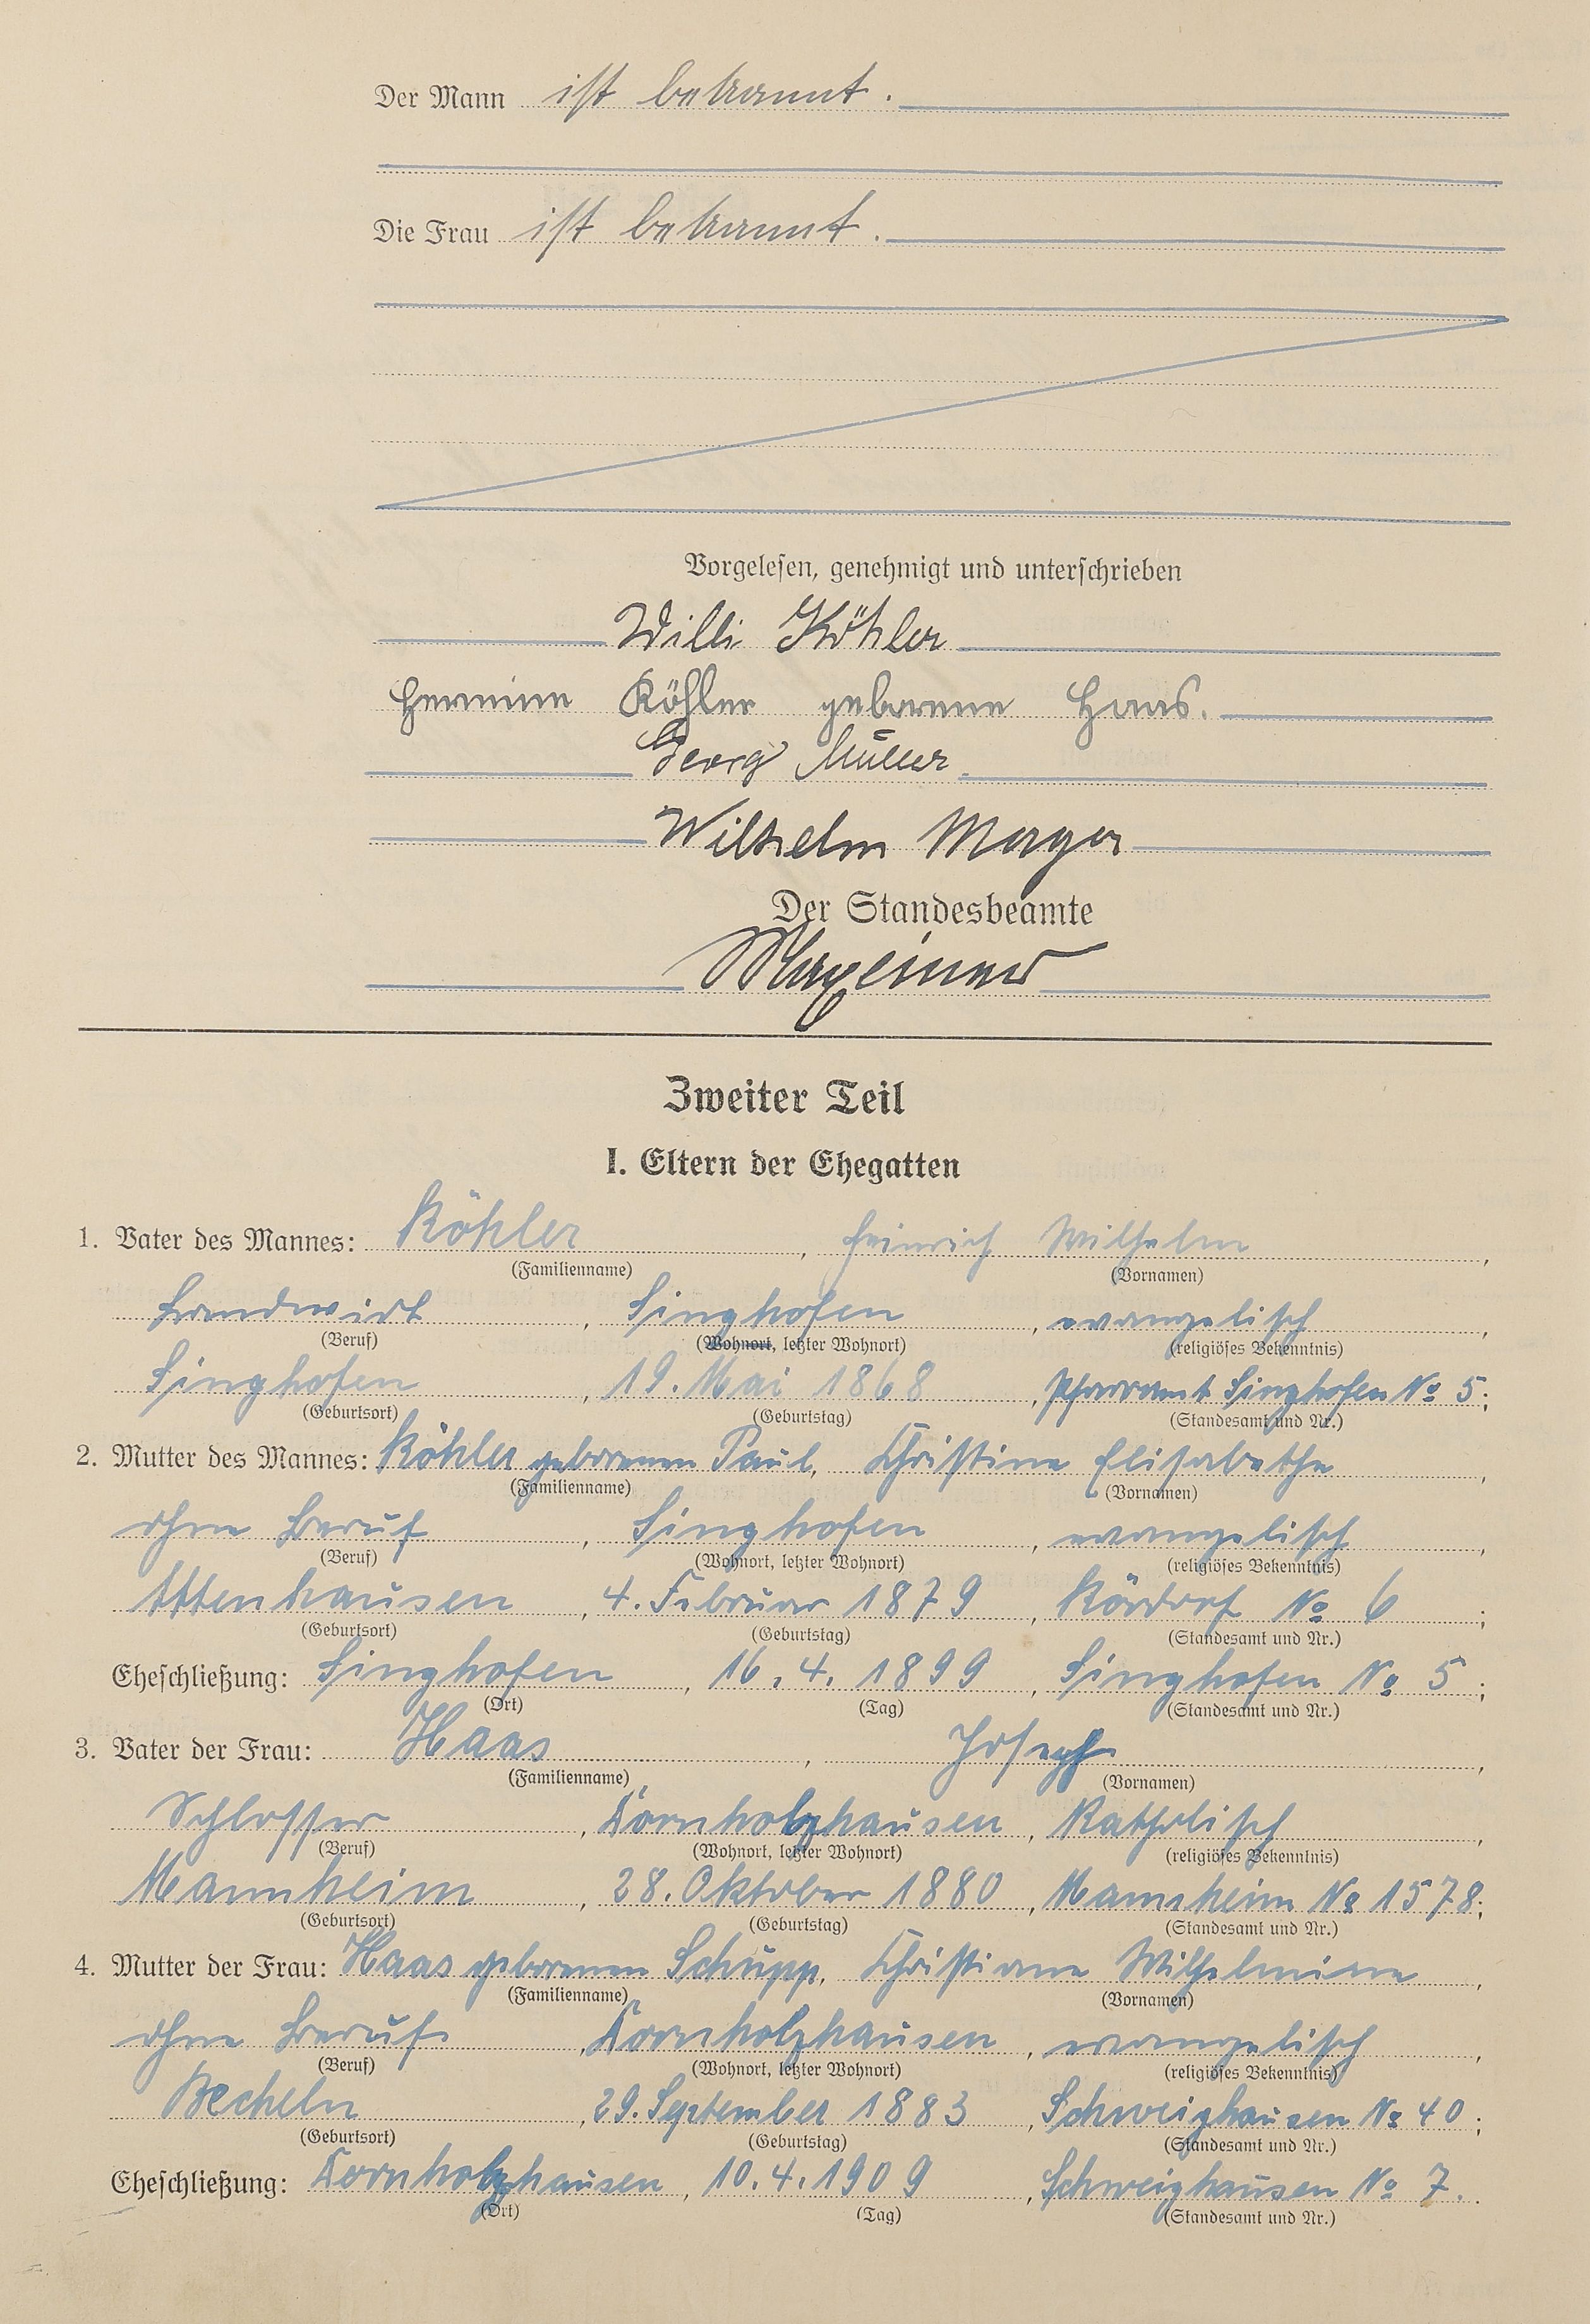 Der Mann ist bekannt.
Die Frau ist bekannt.
Vorgelesen, genehmigt und unterschrieben
Willi Köhler
Hermine Köhler geborene Haas.
Georg Müller
Wilhelm Mayer
Der Standesbeamte
Zweiter Teil
I. Eltern der Ehegatten
1. Vater des Mannes: Köhler, Heinrich Wilhelm,
(Familienname) (Vornamen)
Landwirt, Singhofen, evangelisch,
(Beruf) (Wohnort, letzter Wohnort) (religiöses Bekenntnis)
Singhofen, 19. Mai 1868, Pfarramt Singhofen No 5;
(Geburtsort) (Geburtstag) (Standesamt und Nr.)
2. Mutter des Mannes: Köhler geborenen Paul, Christine Elisabethe,
(Familienname) (Vornamen)
ohne Beruf, Singhofen, evangelisch,
(Beruf) (Wohnort, letzter Wohnort) (religiöses Bekenntnis)
Attenhausen, 4. Februar 1879, Kördorf No 6;
(Geburtsort) (Geburtstag) (Standesamt und Nr.)
Eheschließung: Singhofen, 16. 4. 1899, Singhofen No 5;
(Ort) (Tag) (Standesamt und Nr.)
3. Vater der Frau: Haas, Joseph,
(Familienname) (Vornamen)
Schlosser, Dornholzhausen, Katholisch,
(Beruf) (Wohnort, letzter Wohnort) (religiöses Bekenntnis)
Mannheim, 28. Oktober 1880, Mannheim No 1578;
(Geburtsort) (Geburtstag) (Standesamt und Nr.)
4. Mutter der Frau: Haas geborenen Schupp, Christiane Wilhelmine,
(Familienname) (Vornamen)
ohne Beruf, Dornholzhausen, evangelisch,
(Beruf) (Wohnort, letzter Wohnort) (religiöses Bekenntnis)
Becheln, 29. September 1883, Schweighausen No 40;
(Geburtsort) (Geburtstag) (Standesamt und Nr.)
Eheschließung: Dornholzhausen, 10. 4. 1909, Schweighausen No 7.
(Ort) (Tag) (Standesamt und Nr.)